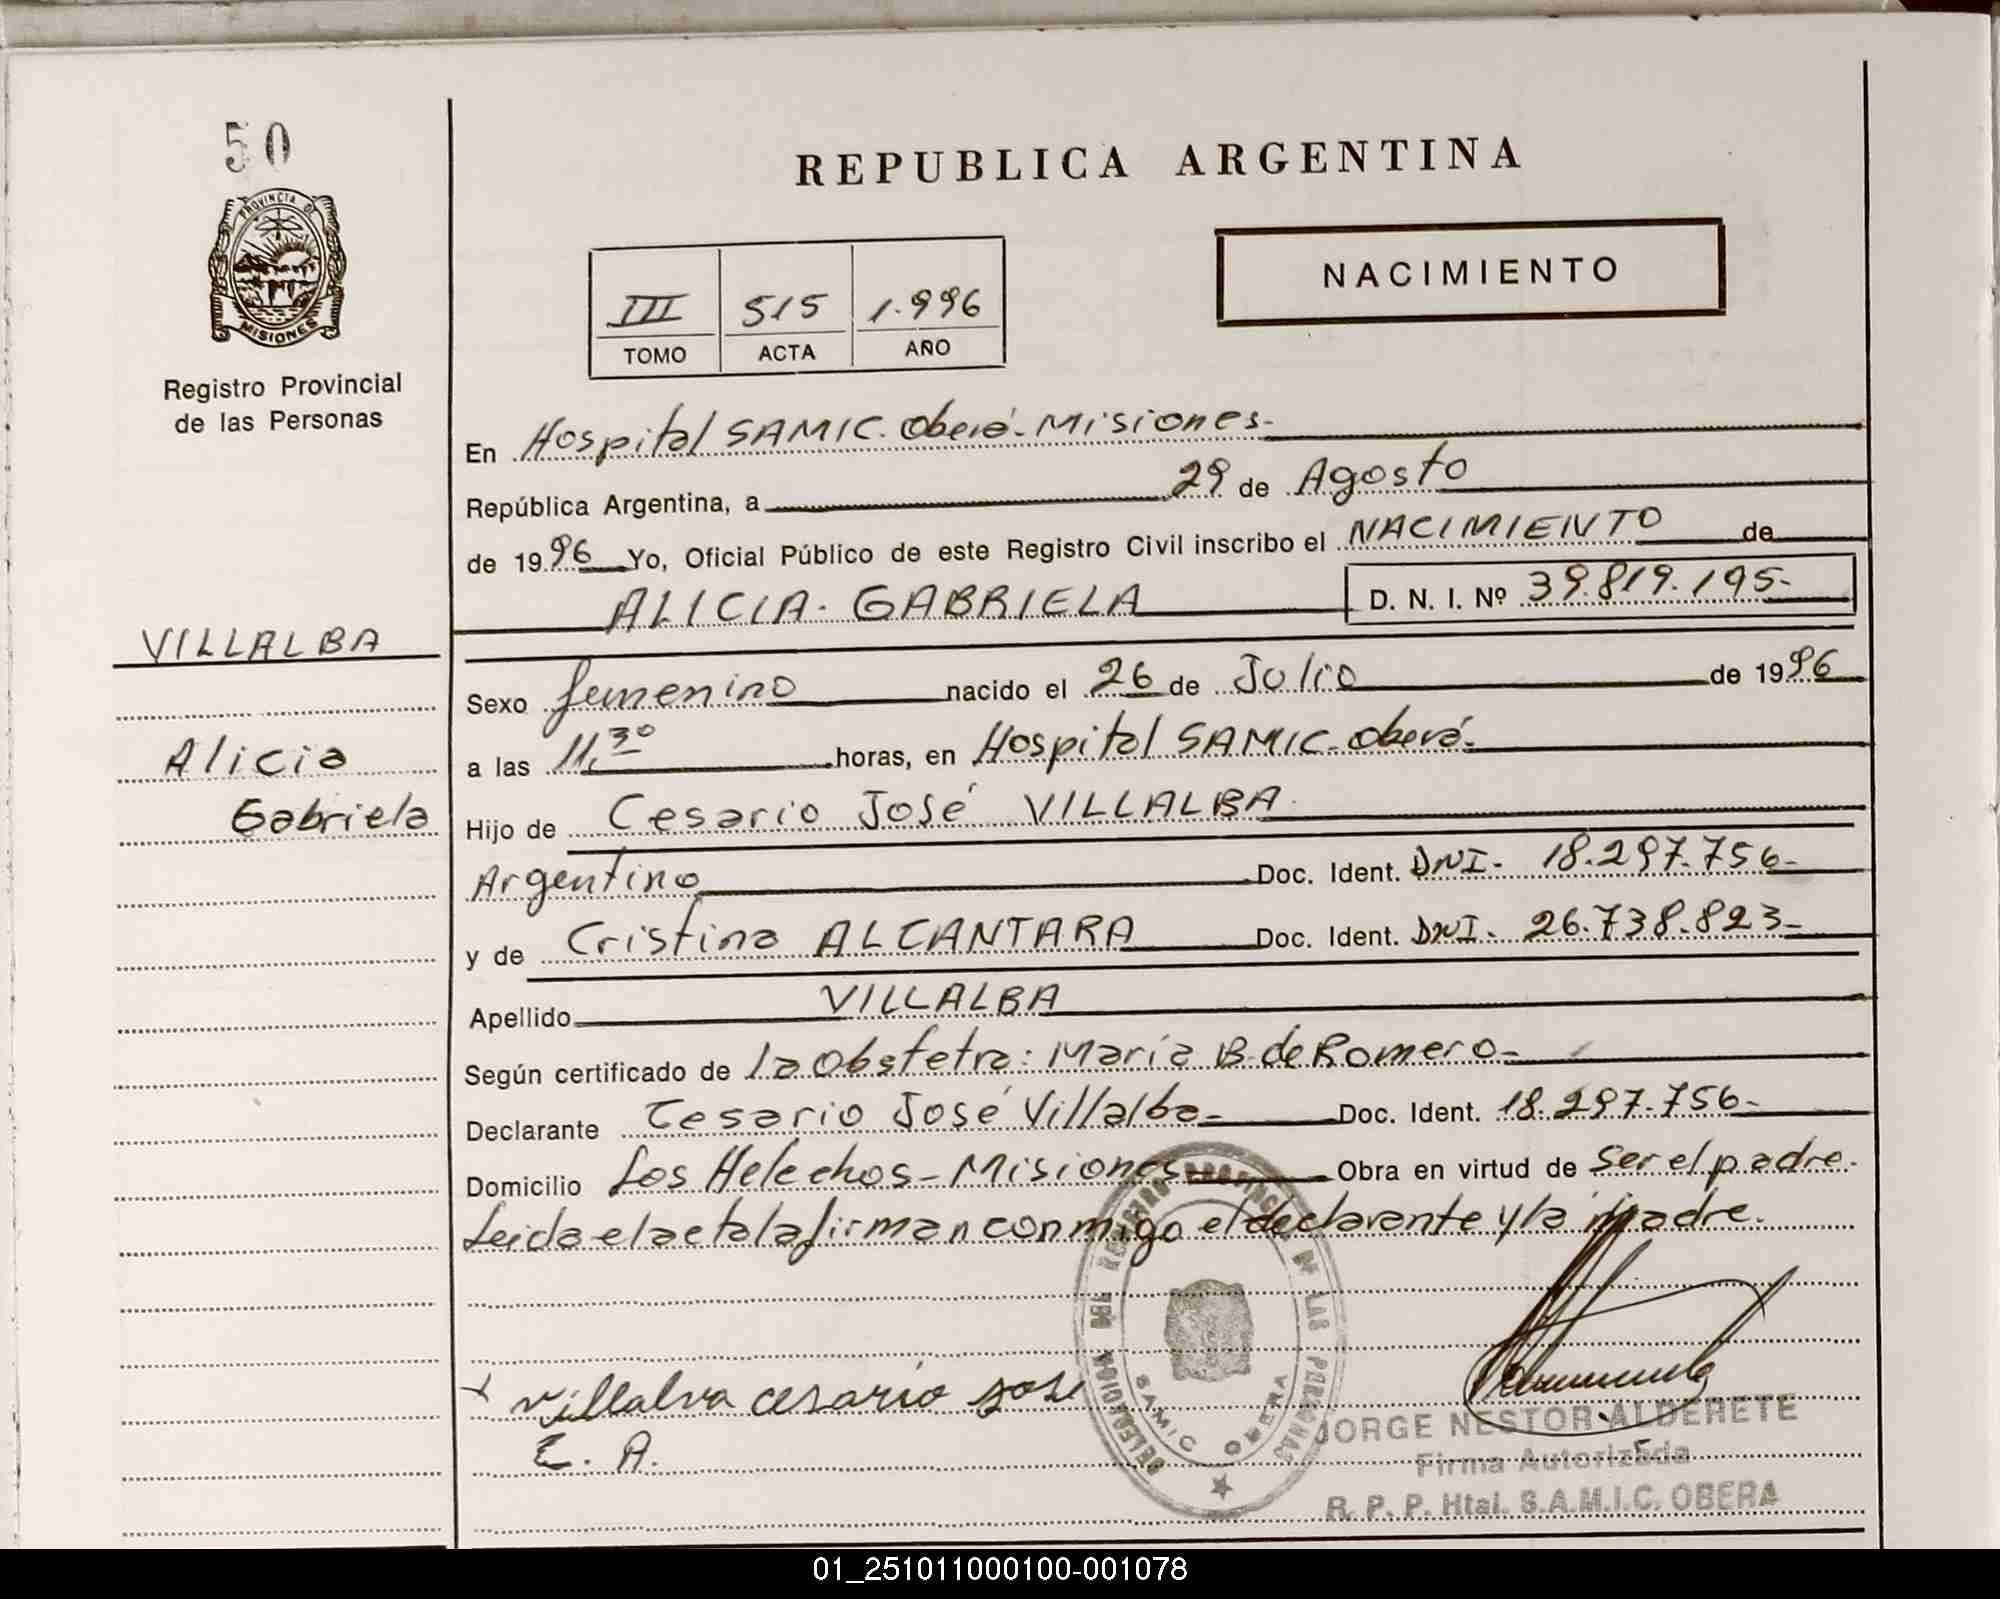 50
PROVINCIA DE
MISIONES
Registro Provincial
de las Personas
REPUBLICA ARGENTINA
NACIMIENTO
III 515 1.996
TOMO ACTA AÑO
En Hospital SAMIC. Oberá-Misiones-
República Argentina, a 29 de Agosto
de 1996 Yo, Oficial Público de este Registro Civil inscribo el NACIMIENTO de
ALICIA-GABRIELA D. N. I. Nº 39.819.195-
VILLALBA
Alicia
Gabriela
Sexo femenino nacido el 26 de Julio de 1996
a las 11,30 horas, en Hospital SAMIC-Oberá-
Hijo de Cesario José VILLALBA-
Argentino Doc. Ident. DNI- 18.297.756-
y de Cristina ALCANTARA Doc. Ident. DNI- 26.738.823-
Apellido VILLALBA
Según certificado de la Obstetra: María B. de Romero-
Declarante Cesario José Villalba- Doc. Ident. 18.297.756-
Domicilio Los Helechos-Misiones Obra en virtud de ser el padre-
Leida el acta la firman conmigo el declarante y la madre.
DELEGACION DEL REGISTRO PROVINCIAL DE LAS PERSONAS
SAMIC OBERA
x Villalva cesario jose
C. A.
JORGE NESTOR ALDERETE
Firma Autorizada
R. P. P. Htal. S.A.M.I.C. OBERA
01_251011000100-001078